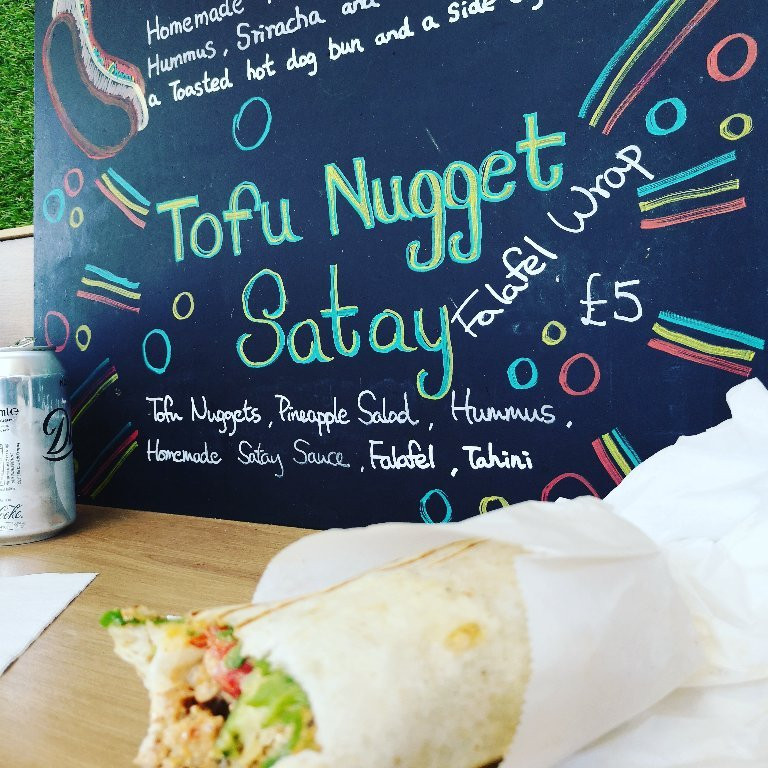 Homemade
Hummus, Sriracha and
a Toasted hot dog bun and a side
Tofu Nugget
Satay
Falafel Wrap
£5
Tofu Nuggets, Pineapple Salad, Hummus,
Homemade Satay Sauce, Falafel, Tahini